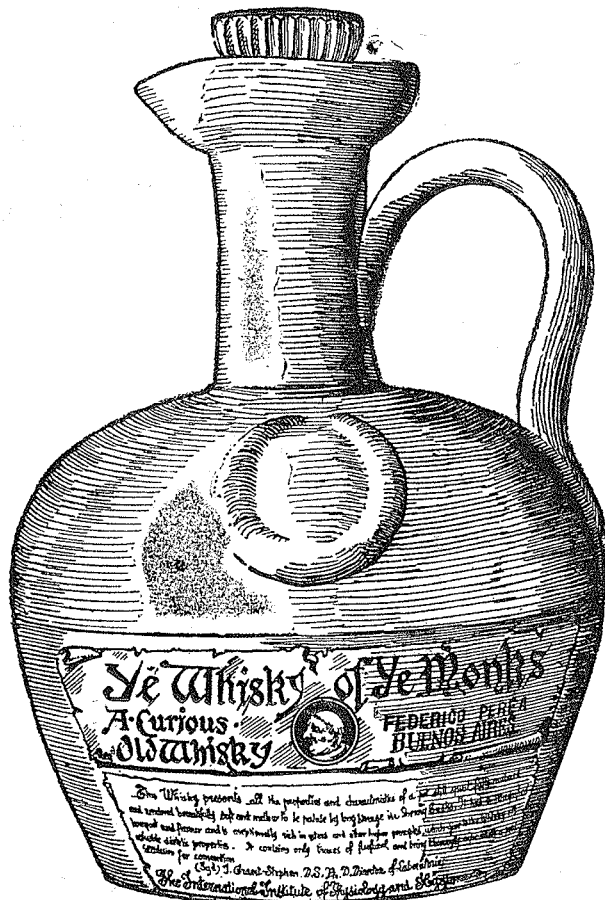 Ye Whisky of Ye Monks
A Curious
Old Whisky
FEDERICO PEREA
BUENOS AIRES
This Whisky presents all the properties and characteristics of a
and rendered beautifully soft and mellow to palate by long storage in Sherry
bouquet and flavour and is exceptionally rich in and other higher which
valuable dietetic properties. It contains only traces of fusel oil and being thoroughly
(Sgd) J. Grant-Stephen. D.S. Director of Laboratories
The International Institute of Physiology and